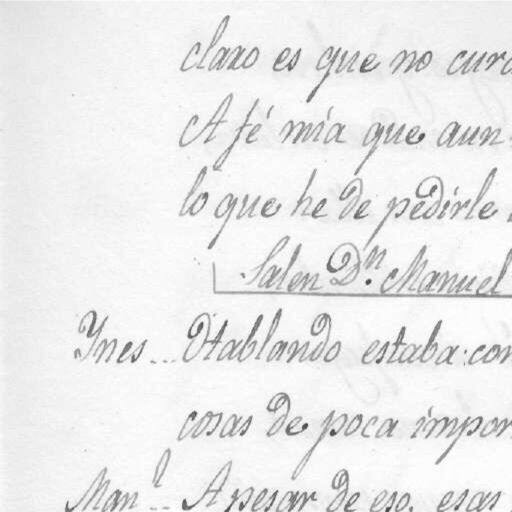 claro es que no cura
A fé mia que aun
lo que he de pedirle
Salen Dn. Manuel
Ynes... Hablando estaba: con
cosas de poca impor
Manl... A pesar de eso, esas